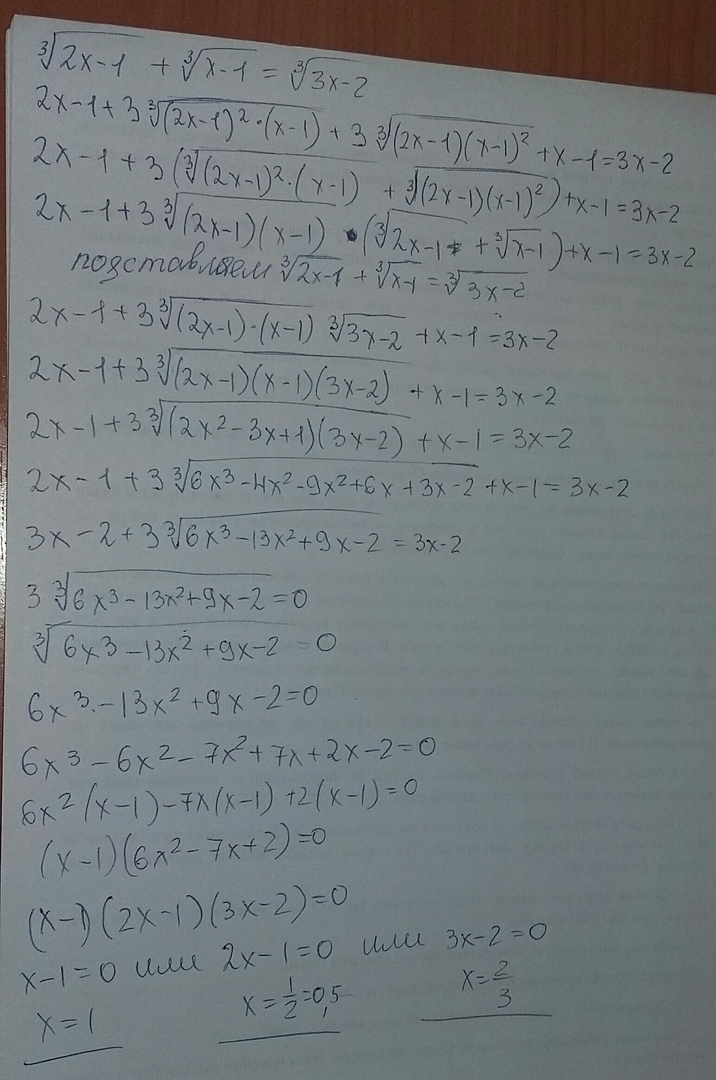 ∛(2x-1) + ∛(x-1) = ∛(3x-2)
2x-1+3∛((2x-1)²·(x-1)) + 3∛((2x-1)(x-1)²) + x-1=3x-2
2x-1+3(∛((2x-1)²·(x-1)) + ∛((2x-1)(x-1)²)) + x-1=3x-2
2x-1+3∛((2x-1)(x-1)) · (∛(2x-1) + ∛(x-1)) + x-1=3x-2
подставляем ∛(2x-1) + ∛(x-1) = ∛(3x-2)
2x-1+3∛((2x-1)·(x-1)) ∛(3x-2) + x-1=3x-2
2x-1+3∛((2x-1)(x-1)(3x-2)) + x-1=3x-2
2x-1+3∛((2x²-3x+1)(3x-2)) + x-1=3x-2
2x-1+3∛(6x³-4x²-9x²+6x+3x-2) + x-1=3x-2
3x-2+3∛(6x³-13x²+9x-2) = 3x-2
3∛(6x³-13x²+9x-2) = 0
∛(6x³-13x²+9x-2) = 0
6x³-13x²+9x-2=0
6x³-6x²-7x²+7x+2x-2=0
6x²(x-1)-7x(x-1)+2(x-1)=0
(x-1)(6x²-7x+2)=0
(x-1)(2x-1)(3x-2)=0
x-1=0 или 2x-1=0 или 3x-2=0
x=1 x=1/2=0,5 x=2/3